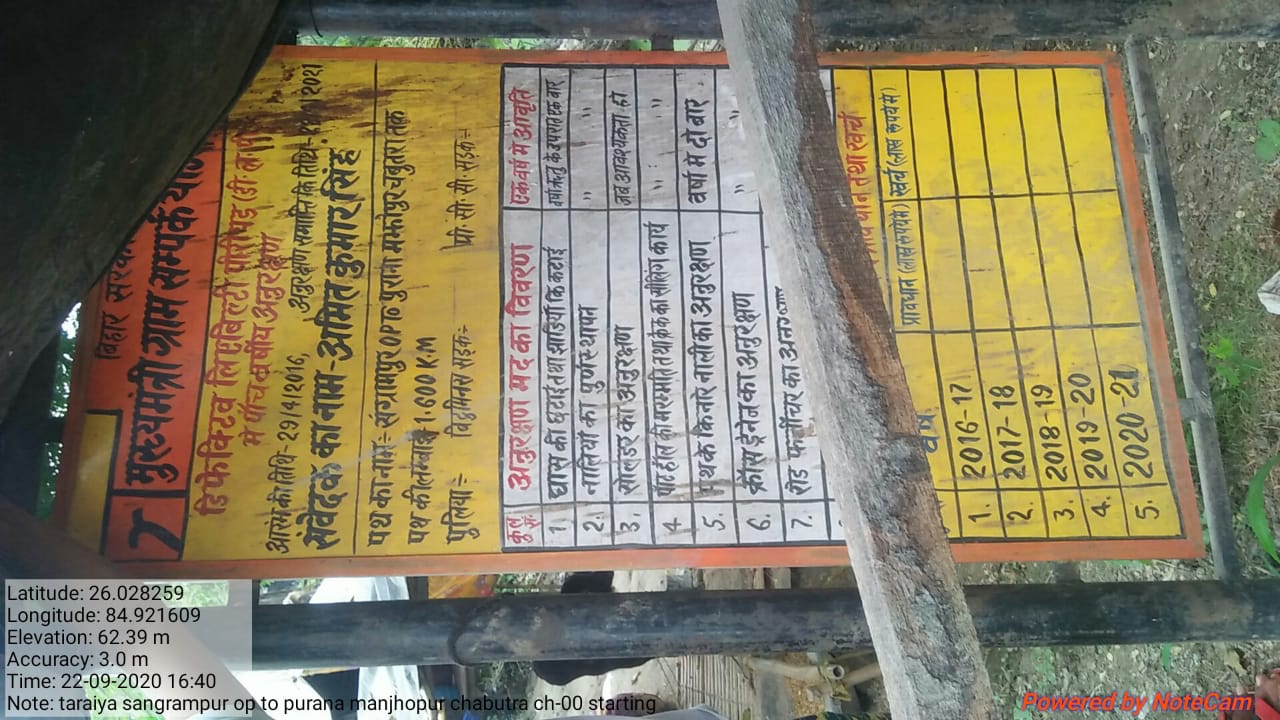 बिहार सरकार
मुख्यमंत्री ग्राम सम्पर्क
डिफेक्टिव लिएबिलिटी परिपड
में पाँच वर्षीय अनुरक्षण
आरंभ की तिथि- 29/4/2016, अनुरक्षण समाप्ति कि तिथि- 2021
संवेदक का नाम - अमित कुमार सिंह
पथ का नाम:- संग्रामपुर OP To पुराना मझोपुर चबुतरा तक
पथ की लम्बाई 1.000 K.M
पुलिया:- बिटुमिनस सड़क:- पी॰ सी॰ सी॰ सड़क:-
अनुरक्षण मद का विवरण एक वर्ष में आवृति
1. घास की छटाई तथा झाडियों कि कटाई वर्षा ऋतु के उपरांत एक बार
2. नालियों का पुर्णस्थापन "
3. सोलडर का अनुरक्षण जब आवश्यकता हो
4. पॉट हॉल की मरम्मति तथा क्रेक का सीलिंग कार्य " "
5. पथ के किनारे नाली का अनुरक्षण वर्षा में दो बार
6. क्रॉस ड्रेनेज का अनुरक्षण "
7. रोड फर्नीचर का अनुरक्षण
तथा खर्च
वर्ष प्रावधान (लाख रूपये में) खर्च (लाख रूपये में)
1. 2016-17
2. 2017-18
3. 2018-19
4. 2019-20
5. 2020-21
Latitude: 26.028259
Longitude: 84.921609
Elevation: 62.39 m
Accuracy: 3.0 m
Time: 22-09-2020 16:40
Note: taraiya sangrampur op to purana manjhopur chabutra ch-00 starting
Powered by NoteCam